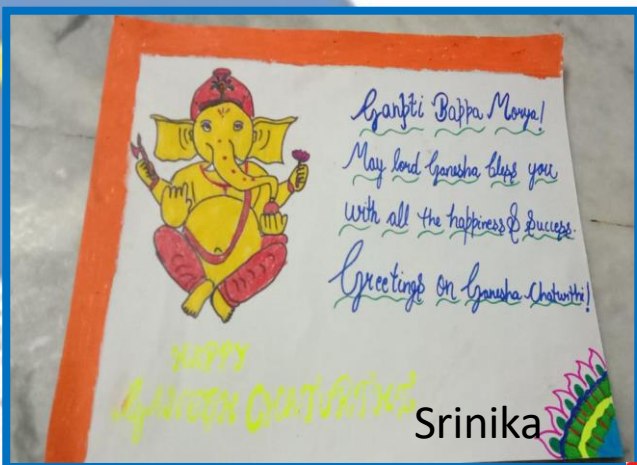 Ganpti Bappa Morya!
May lord Ganesha bless you
with all the happiness & success.
Greetings on Ganesha Chaturthi!
HAPPY
GANESH CHATURTHI
Srinika